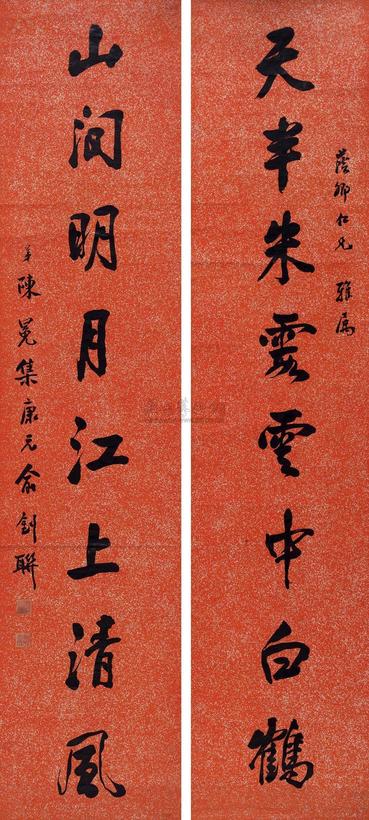 蔭卿仁兄 雅屬
天半朱霞雲中白鶴
山間明月江上清風
弟陳冕集康元俞劍聯